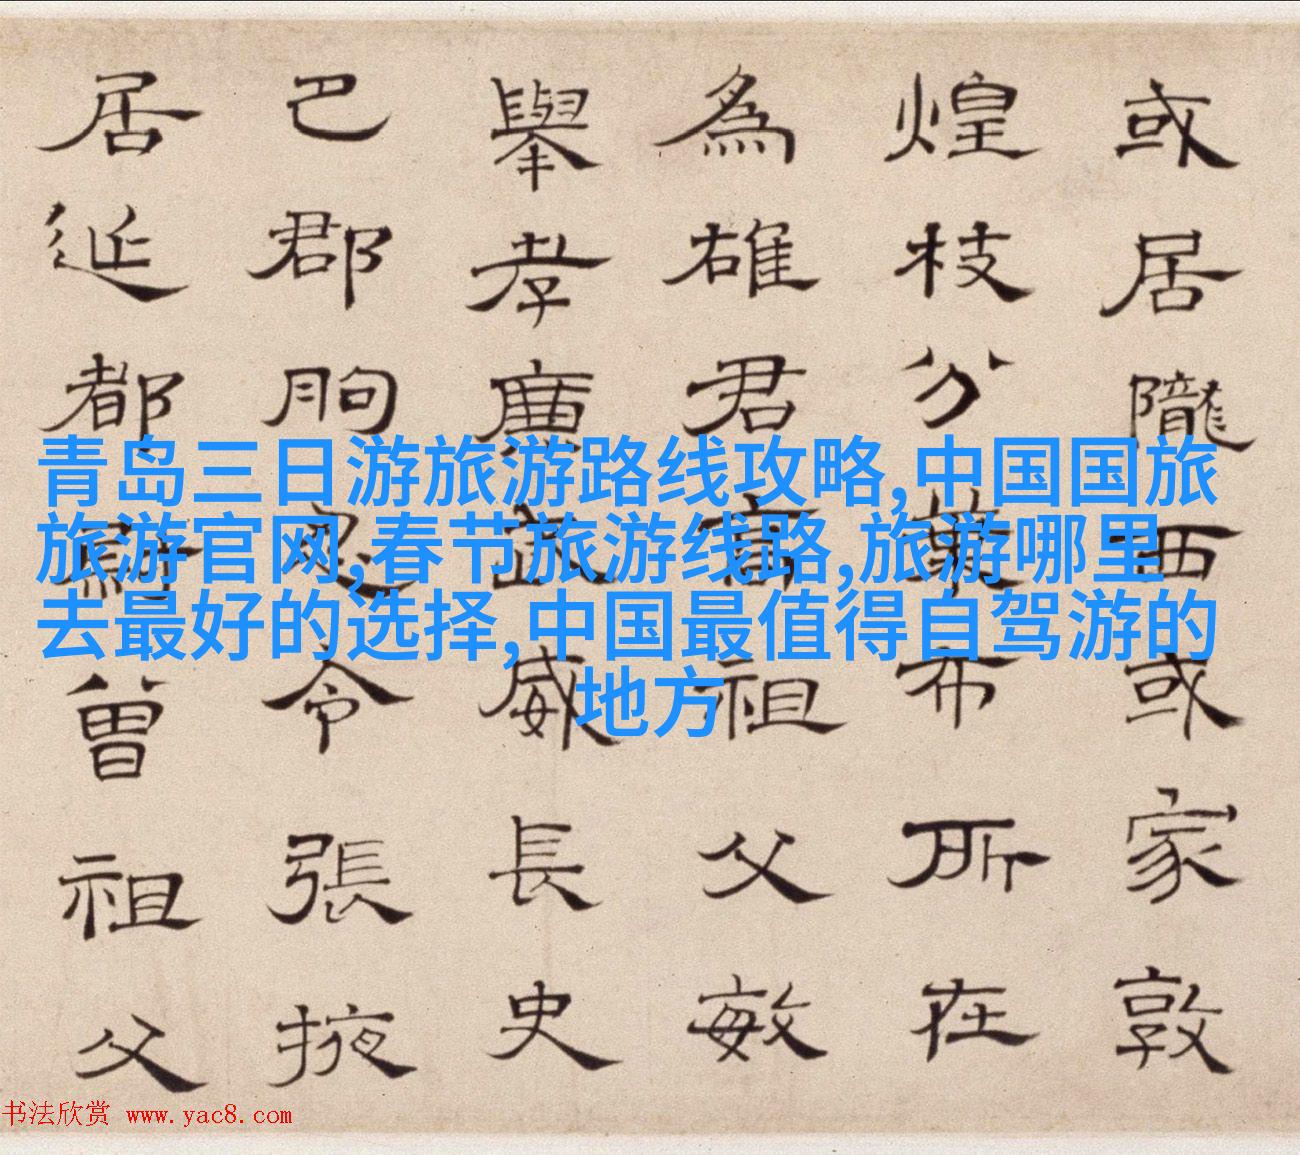 或居隴西或家敦
煌枝分葉布所在
為雄君高祖父敏
舉孝廉武威長史
巴郡朐忍令張掖
居延都尉曾祖父
青岛三日游旅游路线攻略,中国国旅
旅游官网,春节旅游线路,旅游哪里
去最好的选择,中国最值得自驾游的
地方
书法欣赏 www.yac8.com